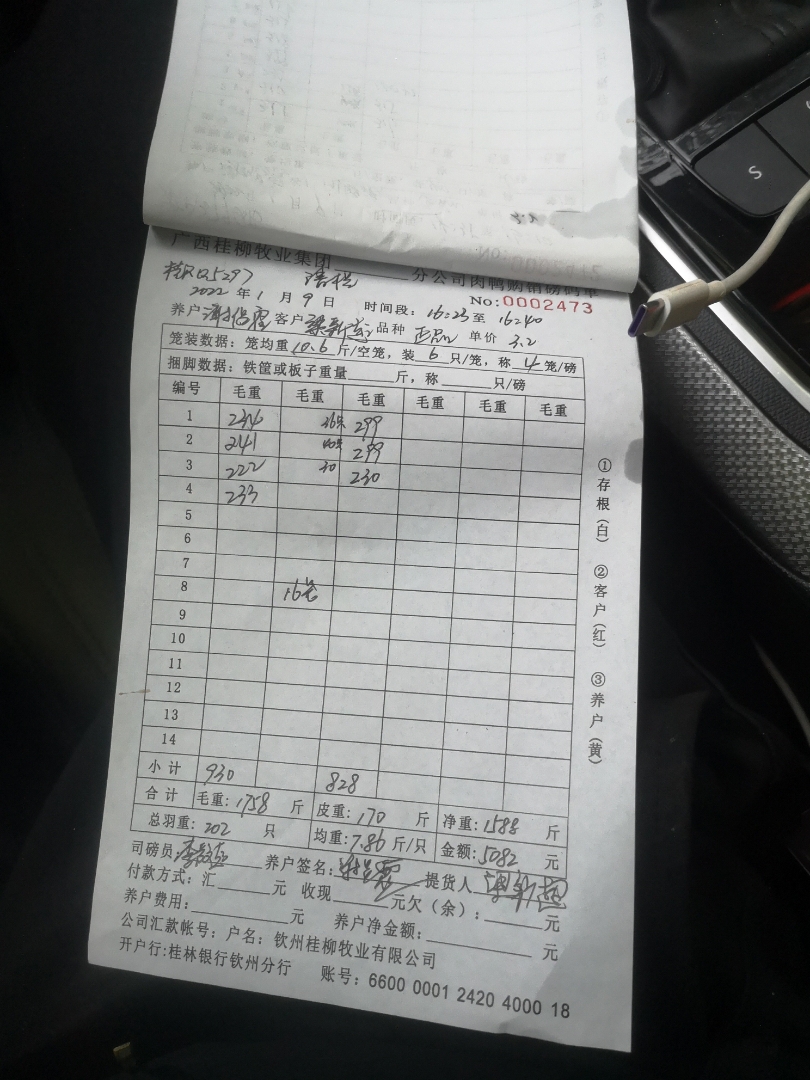 广西桂柳牧业集团 分公司肉鸭购销磅码单
2022 年 1 月 9 日 时间段: 16:23 至 16:40 No:0002473
养户 客户 品种 正品 单价 3.2
笼装数据: 笼均重 10.6 斤/空笼, 装 6 只/笼, 称 4 笼/磅
捆脚数据: 铁筐或板子重量 斤, 称 只/磅
编号 毛重 毛重 毛重 毛重 毛重 毛重
1 234 36只 299
2 241 40只 299
3 222 30 230
4 233
5
6
7
8 16笼
9
10
11
12
13
14
小计 930 828
合计 毛重: 1758 斤 皮重: 170 斤 净重: 1588 斤
总羽重: 202 只 均重: 7.86 斤/只 金额: 5082 元
司磅员 养户签名: 提货人
付款方式: 汇 元 收现 元欠(余): 元
养户费用: 元 养户净金额: 元
公司汇款帐号: 户名: 钦州桂柳牧业有限公司
开户行: 桂林银行钦州分行 账号: 6600 0001 2420 4000 18
①存根(白) ②客户(红) ③养户(黄)
S